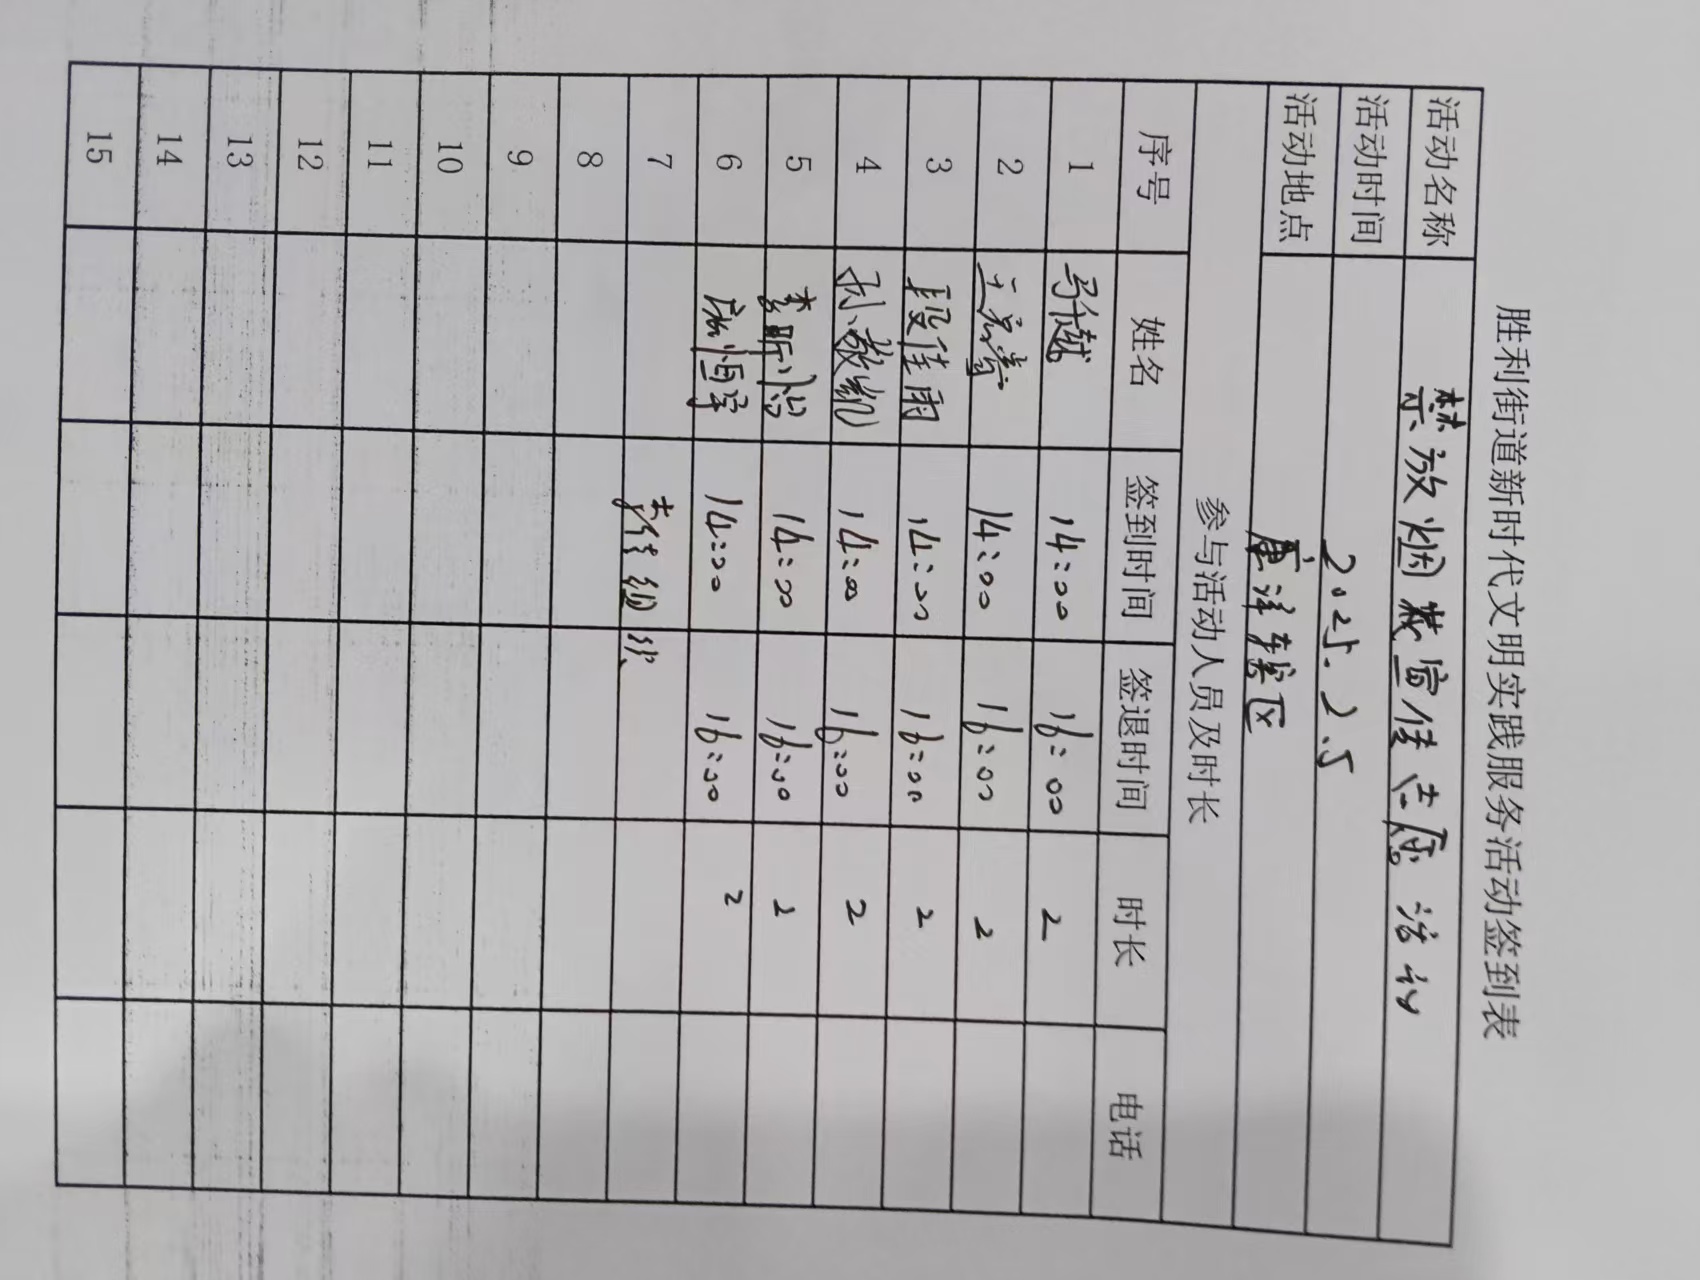 胜利街道新时代文明实践服务活动签到表
活动名称 禁放烟花宣传志愿活动
活动时间 2025.2.5
活动地点 社区
参与活动人员及时长
序号 姓名 签到时间 签退时间 时长 电话
1 马健 14:00 16:00 2
2 王 14:00 16:00 2
3 段佳雨 14:00 16:00 2
4 孙敬凯 14:00 16:00 2
5 李昕 14:00 16:00 2
6 恒宇 14:00 16:00 2
7
8
9
10
11
12
13
14
15